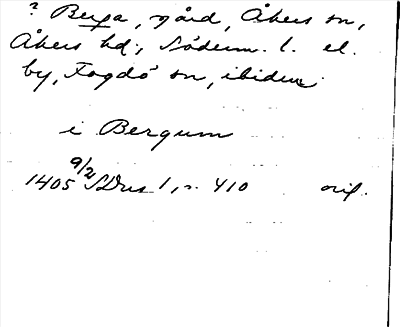 ? Berga, gård, Åkers sn,
Åkers hd., Söderm. l. el.
by, Fogdö sn, ibidem
i Bergum
1405 9/2 SDns 1, n. 410 orig.